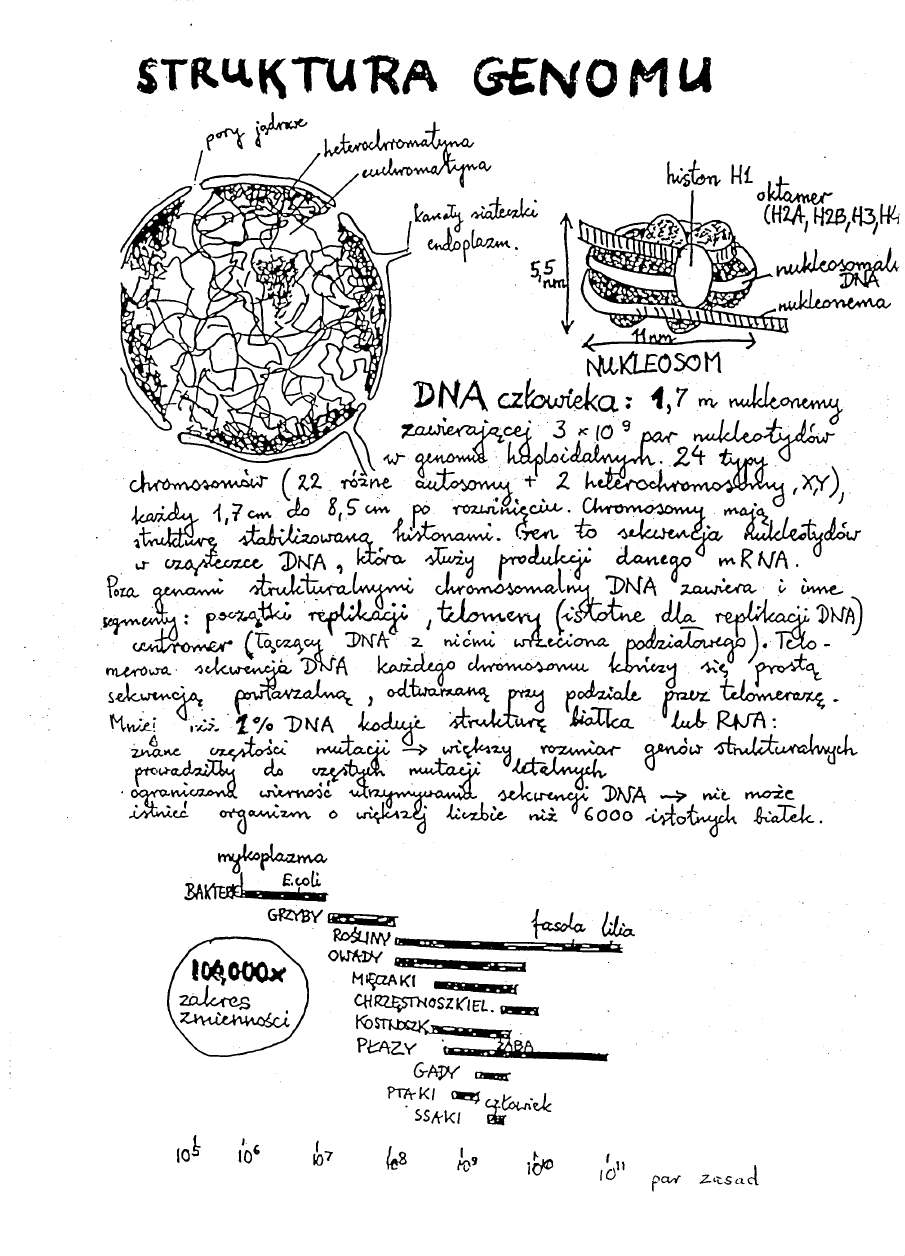 STRUKTURA GENOMU
pory jądrowe
heterochromatyna
euchromatyna
kanały siateczki
endoplazm.
histon H1
oktamer
(H2A, H2B, H3, H4
nukleosomaln
DNA
nukleonema
5,5
nm
11nm
NUKLEOSOM
DNA człowieka: 1,7 m nukleonemy
zawierającej 3 × 10⁹ par nukleotydów
w genomie haploidalnym. 24 typy
chromosomów (22 różne autosomy + 2 heterochromosomy, X,Y),
każdy 1,7 cm do 8,5 cm po rozwinięciu. Chromosomy mają
strukturę stabilizowaną histonami. Gen to sekwencja nukleotydów
w cząsteczce DNA, która służy produkcji danego mRNA.
Poza genami strukturalnymi chromosomalny DNA zawiera i inne
segmenty: początki replikacji, telomery (istotne dla replikacji DNA)
centromer (łączący DNA z nićmi wrzeciona podziałowego). Telo-
merowa sekwencja DNA każdego chromosomu kończy się prostą
sekwencją powtarzalną, odtwarzaną przy podziale przez telomerazę.
Mniej niż 1% DNA koduje strukturę białka lub RNA:
znane częstości mutacji → większy rozmiar genów strukturalnych
prowadziłby do częstych mutacji letalnych
ograniczona wierność utrzymywania sekwencji DNA → nie może
istnieć organizm o większej liczbie niż 6000 istotnych białek.
mykoplazma
BAKTERIE E.coli
GRZYBY
fasola lilia
ROŚLINY
OWADY
MIĘCZAKI
CHRZĘSTNOSZKIEL.
KOSTNOSZK.
PŁAZY ŻABA
GADY
PTAKI
człowiek
SSAKI
100,000x
zakres
zmienności
10⁵ 10⁶ 10⁷ 10⁸ 10⁹ 10¹⁰ 10¹¹ par zasad